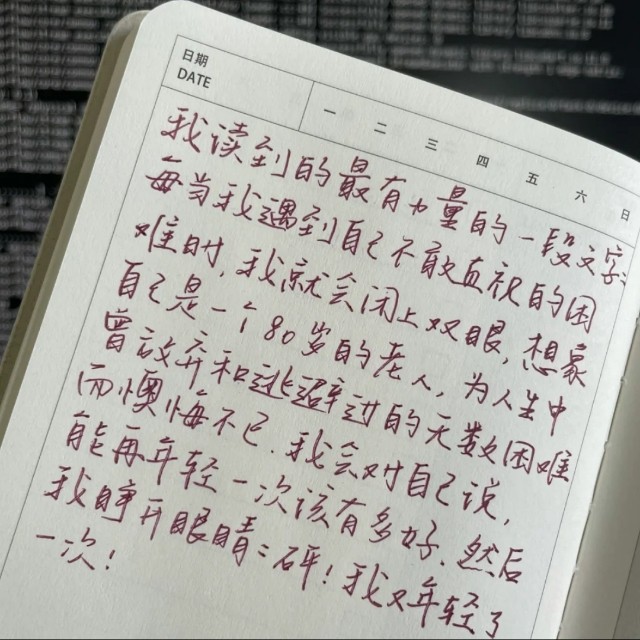 日期
DATE
一 二 三 四 五 六 日
我读到的最有力量的一段文字:
每当我遇到自己不敢直视的困
难时,我就会闭上双眼,想象
自己是一个80岁的老人,为人生中
曾放弃和逃避过的无数困难
而懊悔不已.我会对自己说,
能再年轻一次该有多好.然后
我睁开眼睛:砰!我又年轻了
一次!